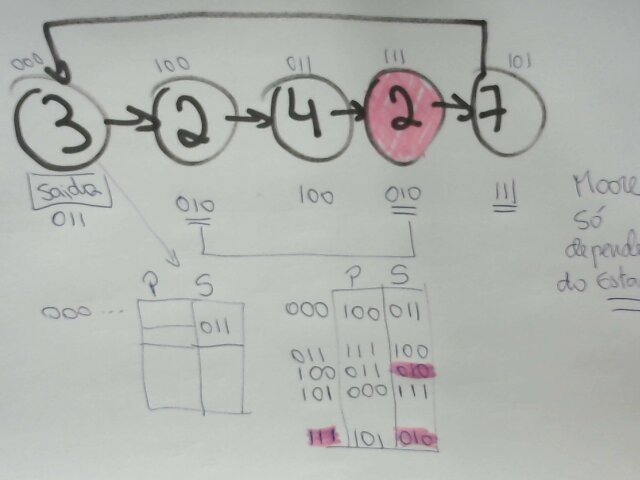 000 100 011 111 101
3 2 4 2 7
Saída
011 010 100 010 111
Moore
Só
depende
do Esta
P S
000 ...
011
P S
000 100 011
011 111 100
100 011 010
101 000 111
111 101 010